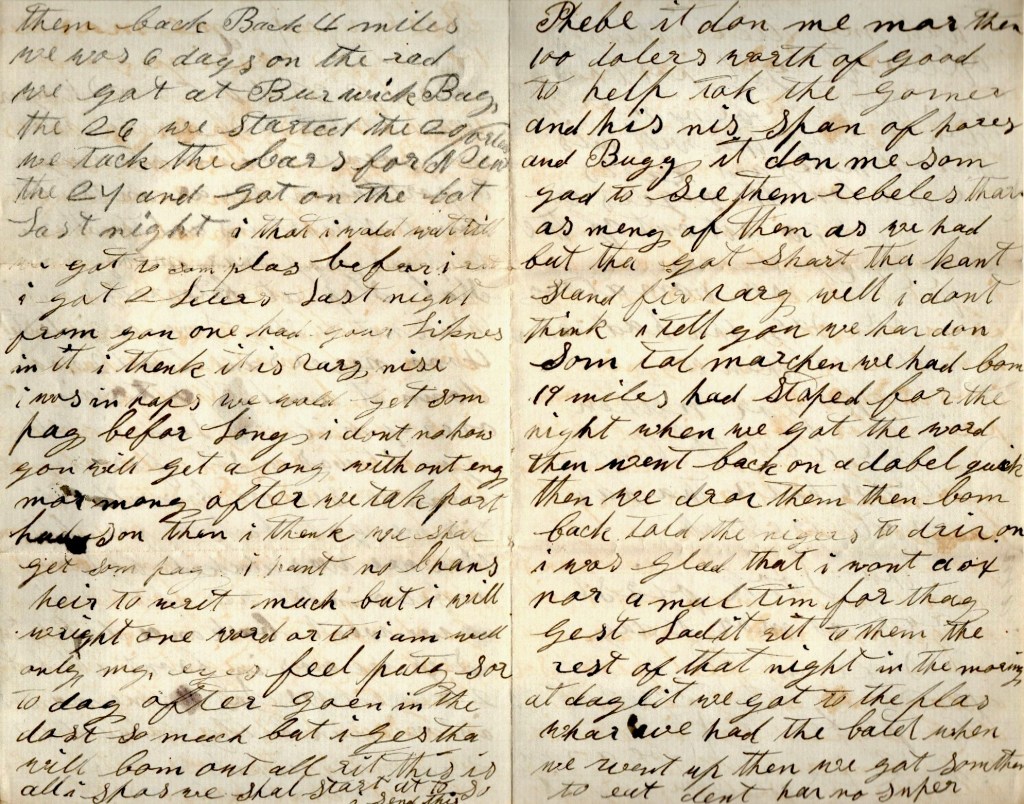 them back Back 4 miles
we was 6 days on the rad
we got at Burwick Bay
the 26 we started the 20
we tack the Cars for New orlens
the 24 and got on the bot
Last night i that i wald wat till
we got to som plas befor i
i got 2 Leters Last night
from you one had your Liknes
in it i thenk it is rary nise
i was in haps we wold get som
pay befor Long i dont no how
you will get a long without eny
mor mony after we tak port
hudson then i thenk we shal
get som pay i hant no Chans
heir to writ much but i will
wright one word or to i am well
only my eyes feel paty sor
to day after goen in the
dost so much but i ges tha
will bom out all rit this is
all i spos we shal start at to so
i send this
Phebe it don me mor then
100 dolers worth of good
to help tak the Gorner
and his nis span of hores
and Bugy it don me som
god to see them rebeles thar
as meny of them as we had
but tha got Shart tha kant
stand fir rary well i dont
think i tell you we har don
som tal marchen we had bom
19 miles had staped for the
night when we got the word
then went back on a dobel quick
then we dror them then bom
back told the nigers to driv on
i was Glad that i want a ox
nor a mul tim for thay
Gest Ladit rit to them the
rest of that night in the morning
at daylit we got to the plas
whar we had the batel when
we went up then we got somthen
to eat dent har no super